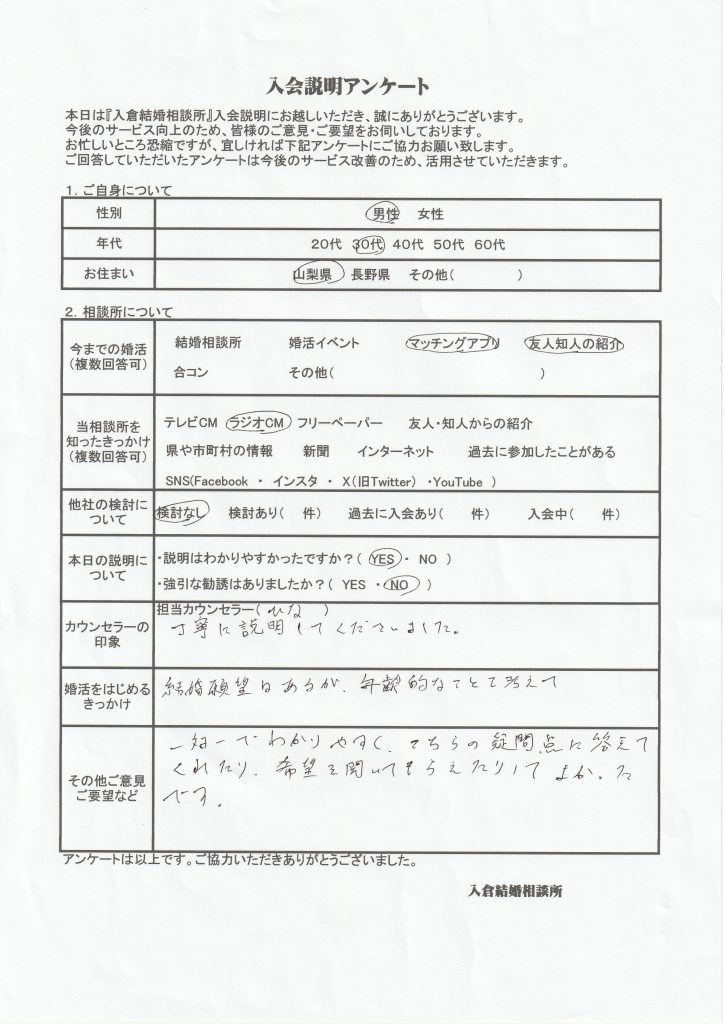 入会説明アンケート
本日は『入倉結婚相談所』入会説明にお越しいただき、誠にありがとうございます。
今後のサービス向上のため、皆様のご意見・ご要望をお伺いしております。
お忙しいところ恐縮ですが、宜しければ下記アンケートにご協力お願い致します。
ご回答していただいたアンケートは今後のサービス改善のため、活用させていただきます。
1. ご自身について
性別 男性 女性
年代 20代 30代 40代 50代 60代
お住まい 山梨県 長野県 その他( )
2. 相談所について
今までの婚活
(複数回答可)
結婚相談所 婚活イベント マッチングアプリ 友人知人の紹介
合コン その他( )
当相談所を
知ったきっかけ
(複数回答可)
テレビCM ラジオCM フリーペーパー 友人・知人からの紹介
県や市町村の情報 新聞 インターネット 過去に参加したことがある
SNS(Facebook ・ インスタ ・ X(旧Twitter) ・YouTube )
他社の検討に
ついて
検討なし 検討あり( 件) 過去に入会あり( 件) 入会中( 件)
本日の説明に
ついて
・説明はわかりやすかったですか?( YES ・ NO )
・強引な勧誘はありましたか?( YES ・ NO )
カウンセラーの
印象
担当カウンセラー( ひな )
丁寧に説明してくださいました。
婚活をはじめる
きっかけ
結婚願望はあるが、年齢的なことで考えて
その他ご意見
ご要望など
一対一でわかりやすく、こちらの疑問点に答えて
くれたり、希望を聞いてもらえたりしてよかった
です。
アンケートは以上です。ご協力いただきありがとうございました。
入倉結婚相談所